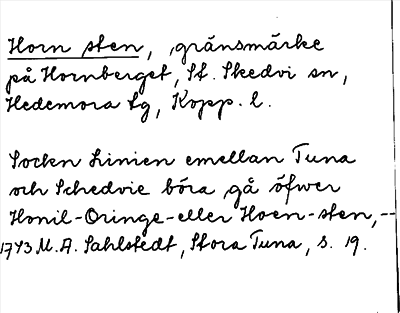 Horn sten, gränsmärke
på Hornberget, St. Skedvi sn,
Hedemora tg, Kopp. l.
Sockn Linien emellan Tuna
och Schedvie böra gå öfwer
Honil-Oringe-eller Hoen-sten,--
1743 M. A. Sahlstedt, Stora Tuna, s. 19.